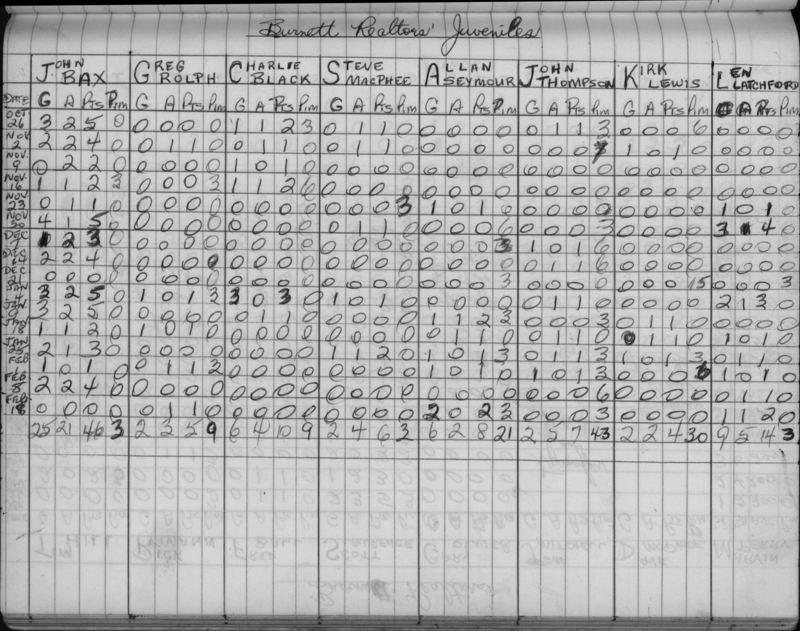 Burnett Realtors' Juveniles
JOHN BAX GREG ROLPH CHARLIE BLACK STEVE MACPHEE ALLAN SEYMOUR JOHN THOMPSON KIRK LEWIS LEN LATCHFORD
DATE G A Pts Pim G A Pts Pim G A Pts Pim G A Pts Pim G A Pts Pim G A Pts Pim G A Pts Pim G A Pts Pim
OCT 26 3 2 5 0 0 0 0 0 1 1 2 3 0 1 1 0 0 0 0 0 0 1 1 3 0 0 0 6 0 0 0 0
NOV 2 2 2 4 0 0 1 1 0 0 1 1 0 0 1 1 0 0 0 0 0 0 0 0 1 0 1 0
NOV 9 0 2 2 0 0 0 0 0 1 0 1 0 0 0 0 0 0 0 0 0 0 0 0 0 0 0 0 0
NOV 16 1 1 2 3 0 0 0 3 1 1 2 6 0 0 0 0 0 0 0 0 0 0 0 0 0 0 0 0 0 0 0 0
NOV 23 0 1 1 0 0 0 0 0 0 0 0 0 0 0 0 3 1 0 1 0 0 0 0 0 0 0 0 1 0 1 0
NOV 30 4 1 5 0 0 0 0 0 0 0 0 0 0 1 1 0 0 0 0 0 0 0 3 0 0 0 0 3 4 0
DEC 2 3 0 0 0 0 0 0 0 0 0 0 0 0 0 0 0 0 3 1 0 1 6 0 0 0 0 0 0 0 0
DEC 2 2 4 0 0 0 0 0 0 0 0 0 0 0 0 0 0 0 0 0 0 1 1 6 0 0 0 0 0 0 0 0
DEC 21 0 0 0 0 0 0 0 0 0 0 0 0 0 0 0 0 0 0 0 3 0 0 0 0 0 0 0 15 0 0 0 3
JAN 3 2 5 0 1 0 1 3 3 0 3 0 1 0 1 0 0 0 0 0 0 1 1 0 0 0 0 0 2 1 3 0
JAN 3 2 5 0 0 0 0 0 0 1 1 0 0 0 0 0 1 1 2 3 0 0 0 3 0 1 1 0 0 0 0 0
JAN 1 1 2 0 1 0 1 0 0 0 0 0 0 0 0 0 0 1 1 0 0 1 1 0 0 1 1 0 1 0 1 0
JAN 25 2 1 3 0 0 0 0 0 0 0 0 0 1 1 2 0 1 0 1 3 0 1 1 3 1 0 1 3 0 1 1 0
FEB 1 0 1 0 0 1 1 3 0 0 0 0 0 0 0 0 1 0 1 0 1 0 1 3 0 0 0 6 1 0 1 0
FEB 8 2 2 4 0 0 0 0 0 0 0 0 0 0 0 0 0 0 0 0 0 0 0 0 6 0 0 0 0 0 1 1 0
FEB 18 0 0 0 0 0 1 1 0 0 0 0 0 0 0 0 0 2 0 2 3 0 0 0 3 0 0 0 0 1 1 2 0
25 21 46 3 2 3 5 9 6 4 10 9 2 4 6 3 6 2 8 21 2 5 7 43 2 2 4 30 9 5 14 3